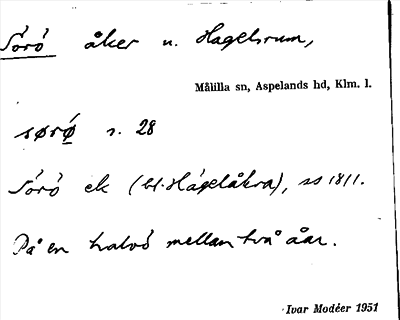 Sörö åker u. Hagelsrum,
Målilla sn, Aspelands hd, Klm. l.
sørø̱ s. 28
Sörö ek (bl. Hagelåkra), ss 1811.
På en halvö mellan två åar.
Ivar Modéer 1951